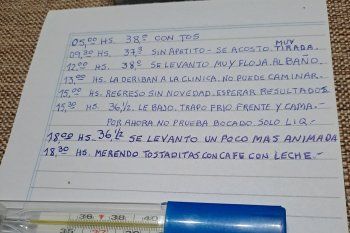 05,00 HS. 38º CON TOS
09,30 HS. 37,3 SIN APETITO - SE ACOSTO MUY TIRADA.
12,00 HS. 38º SE LEVANTO MUY FLOJA. AL BAÑO.
13,00 HS. LA DERIBAN A LA CLINICA. NO PUEDE CAMINAR.
15,00 HS. REGRESO SIN NOVEDAD. ESPERAR RESULTADOS
15,30 HS. 36,1/2. LE BAJO. TRAPO FRIO FRENTE Y CAMA.-
POR AHORA NO PRUEBA BOCADO. SOLO LIQ.-
18,00 HS. 36 1/2 SE LEVANTO UN POCO MAS ANIMADA
18,30 HS. MERENDO TOSTADITAS CON CAFE CON LECHE.-
38 39 40
35 36 37 38